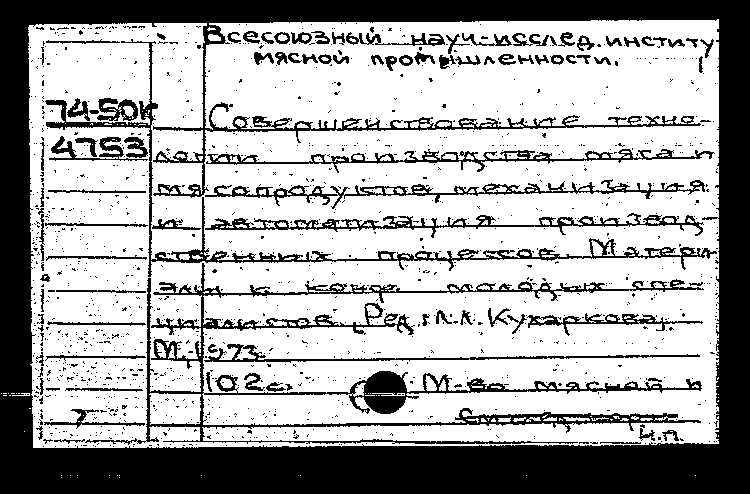 Всесоюзный науч-исслед. институ
мясной промышленности.
74-50К
4753
Совершенствование техно-
логии производства мяса и
мясопродуктов, механизация
и автоматизация производ-
ственных процессов. Матери
алы к конф. молодых спе-
циалистов. [Ред.: Л.Л. Кухаркова].
М., 1973.
102 с. (М-во мясной и
См след карт
н.п.